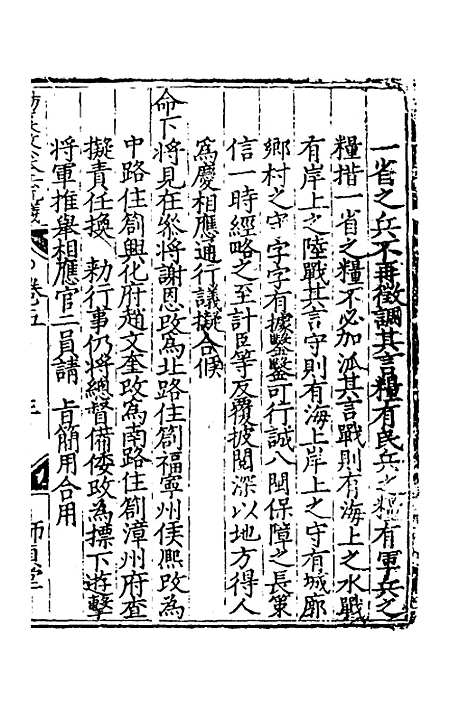 一省之兵不再徵調其言糧有民兵之糧有軍兵之
糧揩一省之糧不必加派其言戰則有海上之水戰
有岸上之陸戰其言守則有海上岸上之守有城廓
鄉村之守字字有據鑿鑿可行誠八閩保障之長策
信一時經略之至計臣等反覆披閱深以地方得人
為慶相應通行議擬合候
命下將見在叅將謝恩改為北路住劄福寧州侯熙改為
中路住劄興化府趙文奎改為南路住劄漳州府查
擬責任換　勑行事仍將總督備倭改為標下遊擊
將軍推舉相應官二員請　旨簡用合用
卷五